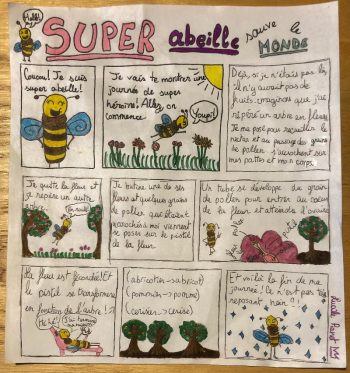 Hello
SUPER abeille sauve le
MONDE
Coucou! Je suis
super abeille!
Je vais te montrer une
journée de super
héroïne! Allez, on
commence
Youpi!
Déjà, si je n'étais pas là,
il n'y aurait pas de
fruits. imaginons que j'ai
repéré un arbre en fleurs.
Je me pose pour recueillir le
nectar et au passage des
grains de pollen s'accrochent sur
mes pattes et mon corps.
Je quitte la fleur et
je repère un autre
J'entre une de ses
fleurs et quelques grains
de pollen qui étaient
accrochés à moi viennent
se poser sur le pistil
de la fleur.
Un tube se développe du grain
de pollen pour entrer au cœur
de la fleur et atteindre l'ovaire
La fleur est fécondée! Et
le pistil se transforme
en fruit
(abricotier → abricot)
(pommier → pomme)
(cerisier → cerise)
Et voilà la fin de ma
journée! Ce n'est pas très
reposant, hein?!